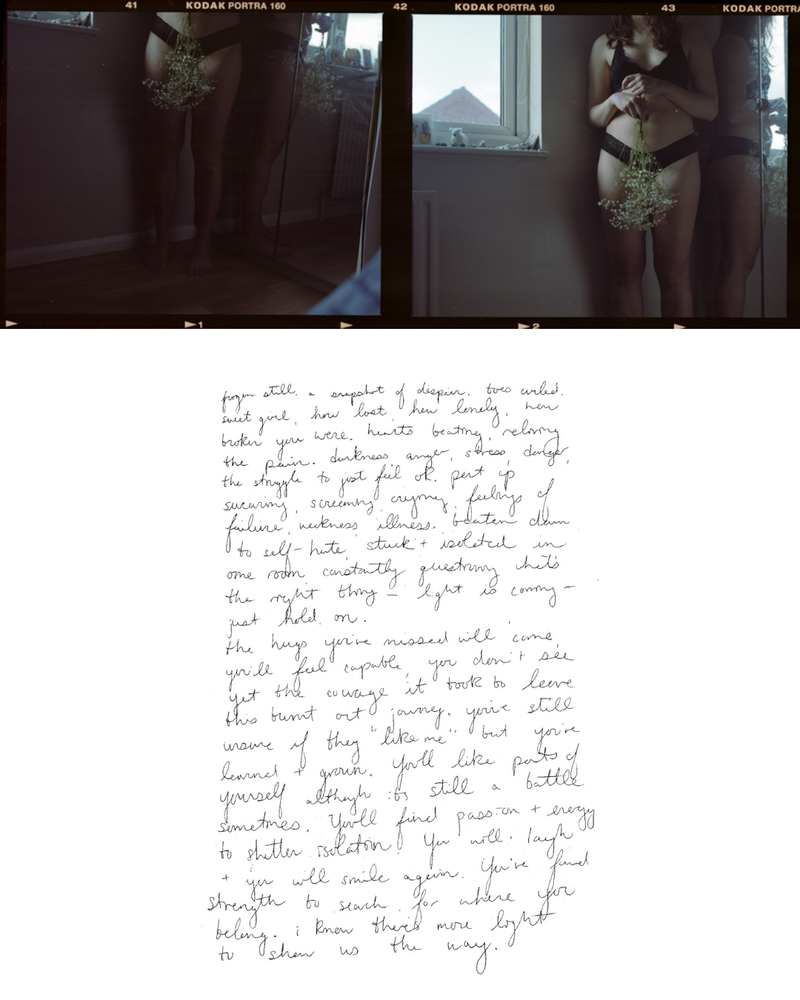 41 KODAK PORTRA 160 42 KODAK PORTRA 160 43 KODAK PORTRA
1 2
frozen still. a snapshot of despair. toes curled.
sweet girl, how lost, how lonely, how
broken you were. hearts beating, reliving
the pain. darkness anger, stress, danger,
the struggle to just feel ok. pent up
swearing, screaming, crying, feelings of
failure, weakness, illness. beaten down
to self-hate, stuck + isolated in
one room constantly questioning what's
the right thing – light is coming –
just hold on.
the hugs you've missed will come,
you'll feel capable, you don't see
yet the courage it took to leave
this burnt out journey. you're still
unsure if they "like me" but you've
learned + grown. You'll like parts of
yourself although its still a battle
sometimes. You'll find passion + energy
to shatter isolation. You will laugh
+ you will smile again. You've found
strength to search for where you
belong. i know there's more light
to show us the way.